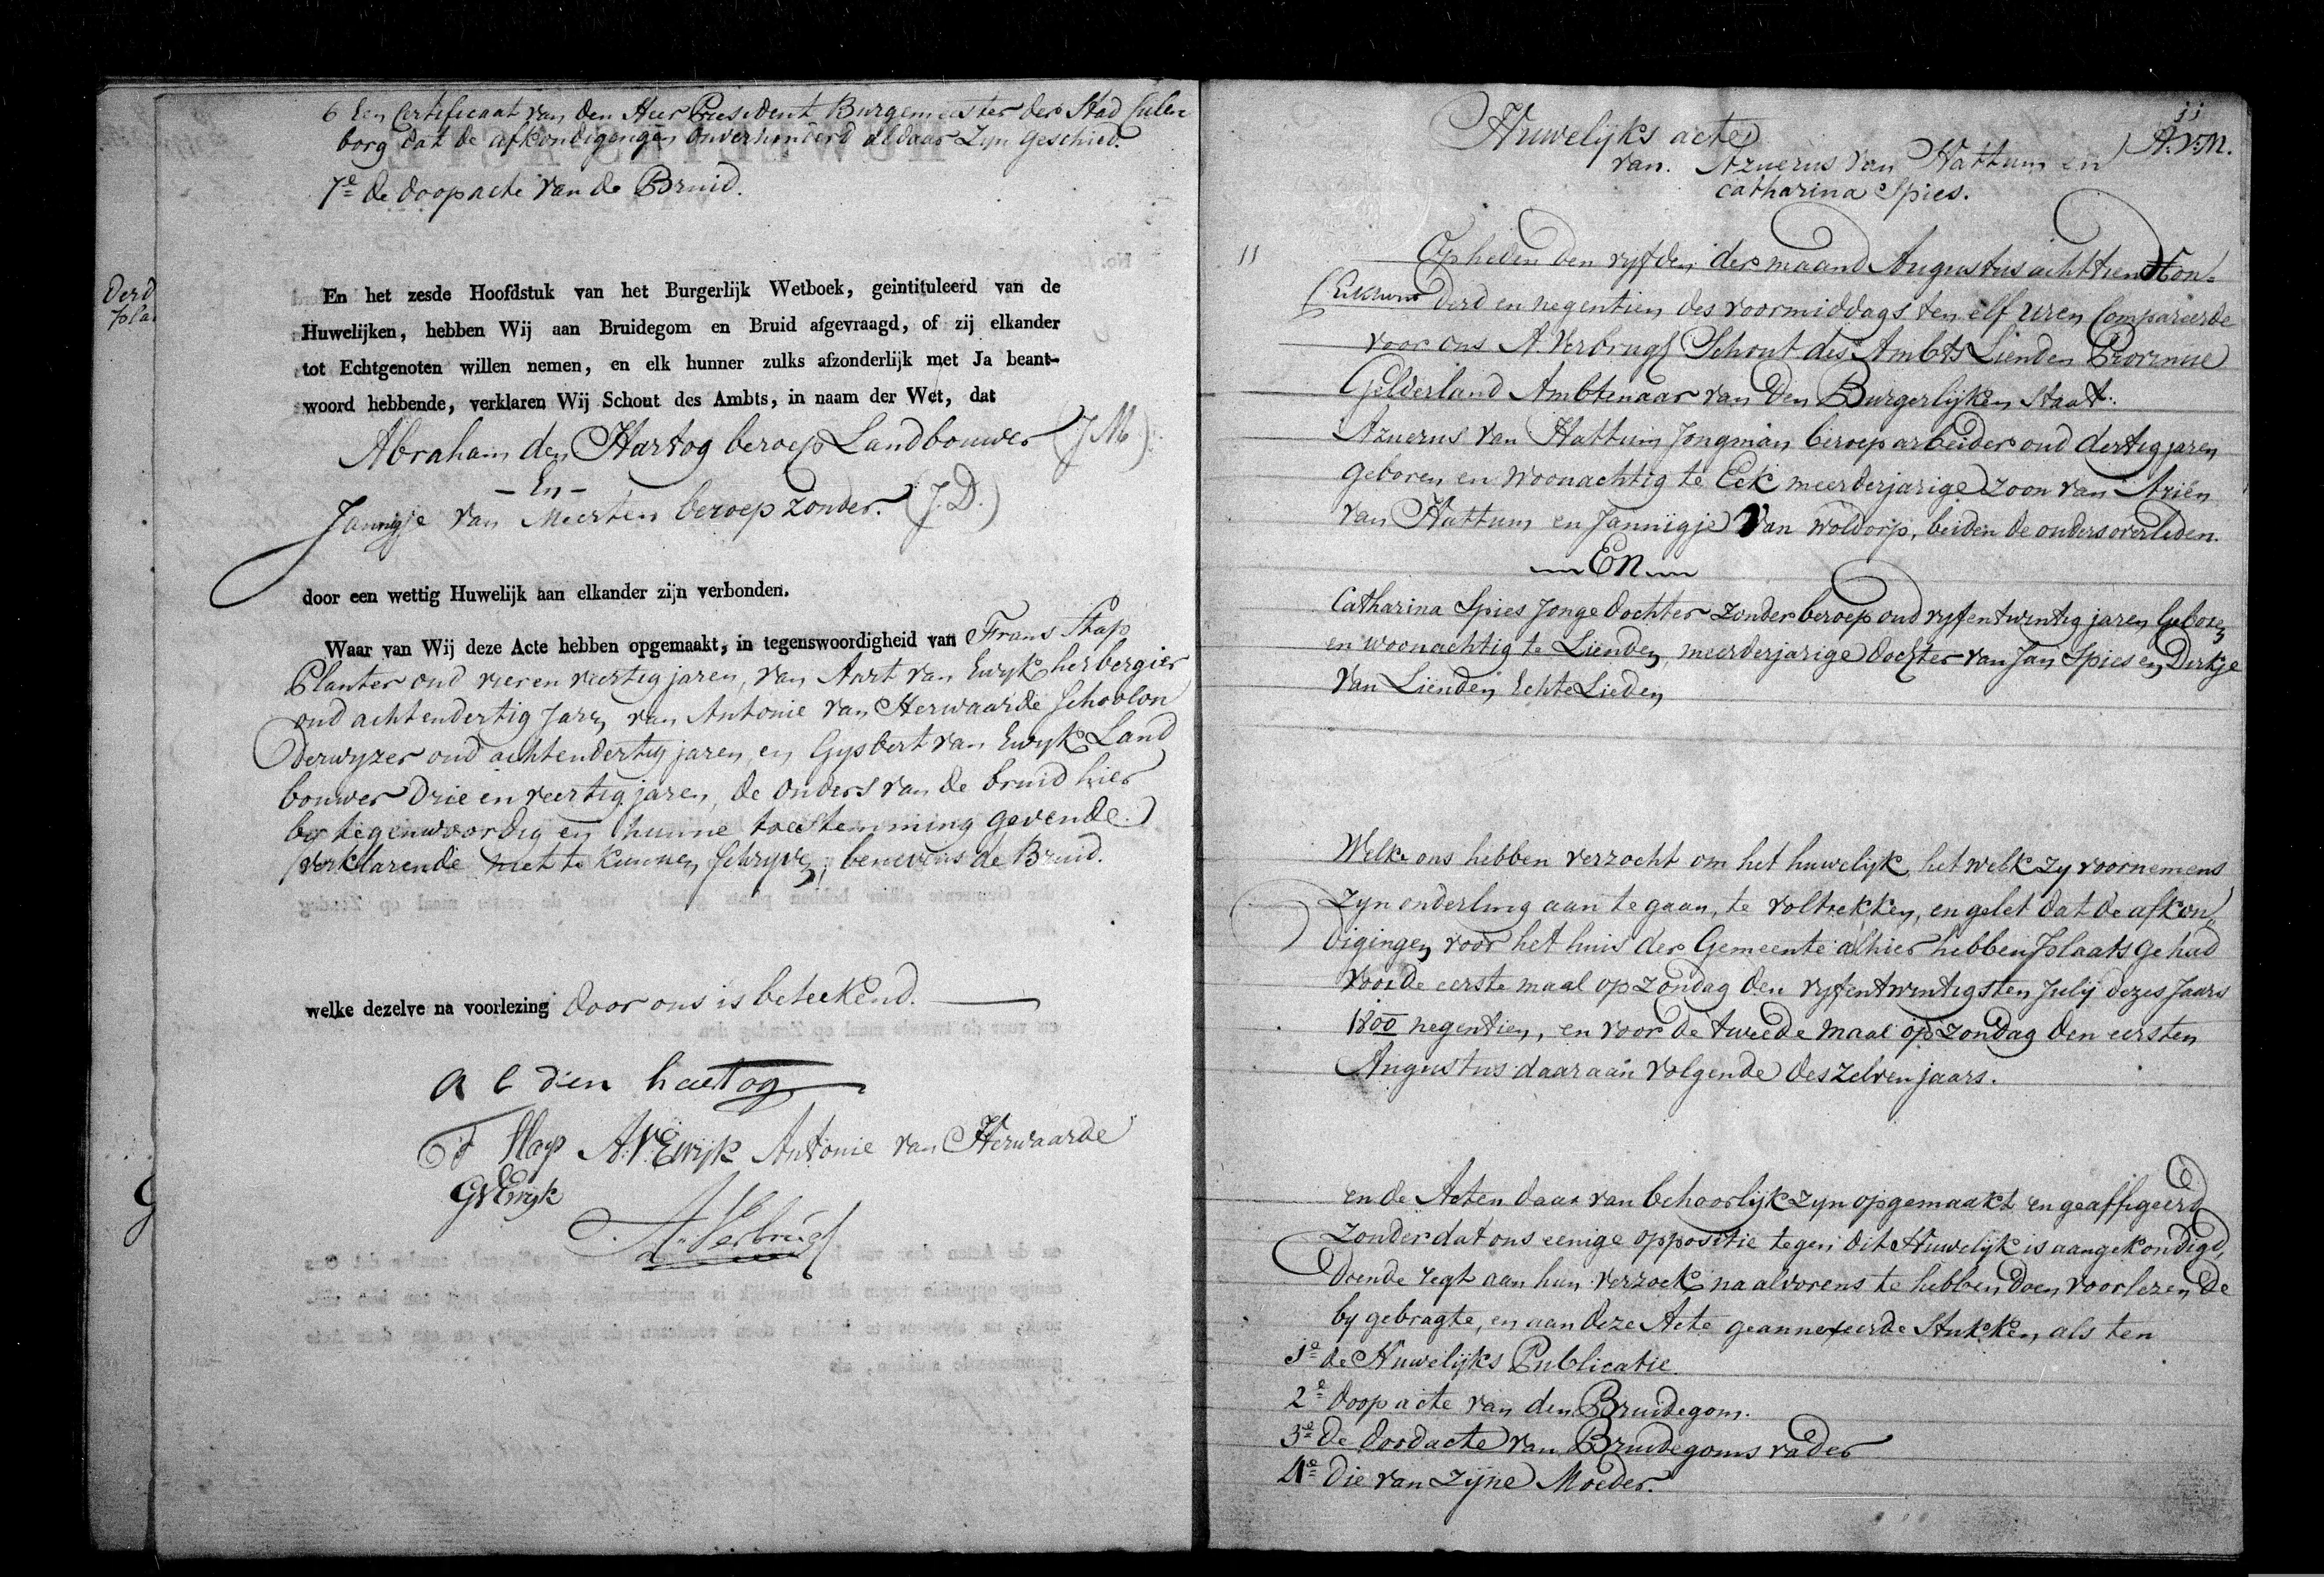 6 Een Certificaat van den Heer President Burgemeester der Stad Culen
borg dat de afkondigengen onverhinderd aldaar Zyn geschied.
7e de doopacte van de Bruid.
En het zesde Hoofdstuk van het Burgerlijk Wetboek, geintituleerd van de
Huwelijken, hebben Wij aan Bruidegom en Bruid afgevraagd, of zij elkander
tot Echtgenoten willen nemen, en elk hunner zulks afzonderlijk met Ja beant-
woord hebbende, verklaren Wij Schout des Ambts, in naam der Wet, dat
Abraham den Hartog beroep Landbouwer (J M)
- En -
Jannigje van Meerten beroep zonder. (J. D.)
door een wettig Huwelijk aan elkander zijn verbonden.
Waar van Wij deze Acte hebben opgemaakt, in tegenswoordigheid van Frans Stap
Planter oud vier en veertig jaren, van Aart van Ewyk herbergier
oud achtendertig Jaren, van Antonie van Herwaarde Schoolon
derwyzer oud achtendertig jaren, en Gysbert van Ewyk Land
bouwer Drie en veertig jaren, de Ouders van de bruid hier
by tegenwoordig en hunne toestemming gevende.
verklarende niet te kunnen Schryven, benevens de Bruid.
welke dezelve na voorlezing door ons is beteekend.
a b den hartog
F Stap A. V. Ewijk Antonie van Herwaarde
G V Ewyk
A. Verbrugh
Derd
pla
11
A.V.M.
Huwelijks acte
van. Azuerus van Hattum en
Catharina Spies.
11
Op heden den vyfden der maand Augustus achttien Hon-
derd en negentien des voormiddags ten elf uren Compareerde
voor ons A. Verbrugh Schout des Ambts Lienden Provincie
Gelderland Ambtenaar van den Burgerlyken Staat.
Azuerus van Hattum Jongman, beroep arbeider oud dertig jaren
geboren en woonachtig te Eck meerderjarige zoon van Arien
van Hattum en Jannigje van Woldorp, beiden de ouders overleden.
En
Catharina Spies Jonge dochter zonder beroep oud vyfentwintig jaren Geboren
en woonachtig te Lienden, meerderjarige dochter van Jan Spies en Dirkje
van Lienden Echte Lieden
Welke ons hebben verzocht om het huwelijk, het welk zy voornemens
zyn onderling aan te gaan, te voltrekken, en gelet dat de afkon
digingen voor het huis der Gemeente alhier hebben plaats gehad
voor de eerste maal op zondag den vyfentwintigsten July dezes Jaars
1800 negentien, en voor de tweede maal op zondag den eersten
Augustus daar aan volgende deszelven jaars.
en de Acten daar van behoorlijk zyn opgemaakt en geaffigeerd
zonder dat ons eenige oppositie tegen dit Huwelijk is aangekondigd,
doende regt aan hun verzoek, na alvorens te hebben doen voorlezen de
by gebragte, en aan deze Acte geannexeerde Stukken, als ten
1e de Huwelijks Publicatie
2e doop acte van den Bruidegom.
3e de doodacte van Bruidegoms vader
4e die van zijne Moeder.